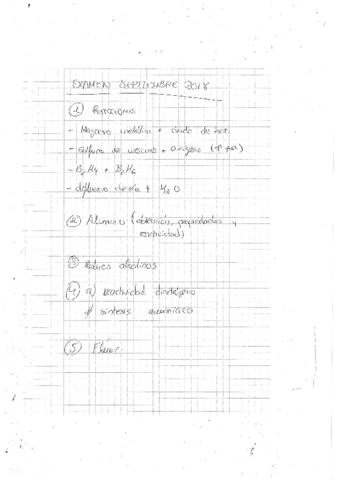 EXAMEN SEPTIEMBRE 2018
① Reacciones
- Magnesio metálico + óxido de zinc
- Sulfuro de mercurio + Oxígeno (↑ Tª)
- B₂H₄ + B₂H₆
- difluoruro de + H₂O
② Aluminio (obtención, propiedades y
reactividad)
③ Metales alcalinos
④ a) reactividad dinitrógeno
b) síntesis amoníaco
⑤ Flúor